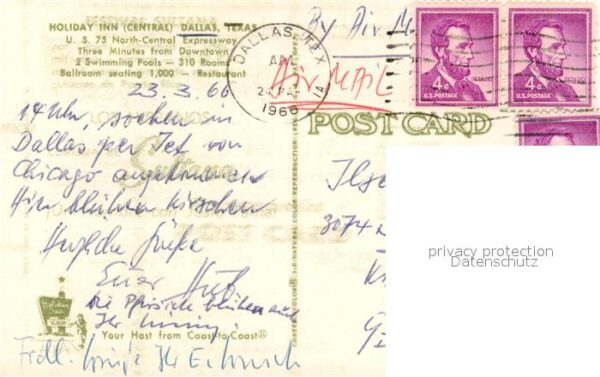 HOLIDAY INN (CENTRAL) DALLAS, TEXAS
U. S. 75 North-Central Expressway
Three Minutes from Downtown
2 Swimming Pools — 310 Rooms
Ballroom seating 1,000 — Restaurant
23. 3. 66
14 Uhr, soeben in
Dallas per Jet von
Chicago angekommen
Hier blühen Kirschen
Herzliche Grüße
Euer
Die Pfirsiche blühen auch
Ihr
Frdl. Grüße Ihr
Holiday Inn
Your Host from Coast to Coast®
DALLAS, TEX
1966
By Air M
Air MAIL
4¢
U.S. POSTAGE
4¢
U.S. POSTAGE
POST CARD
Ilse
3074
privacy protection
Datenschutz